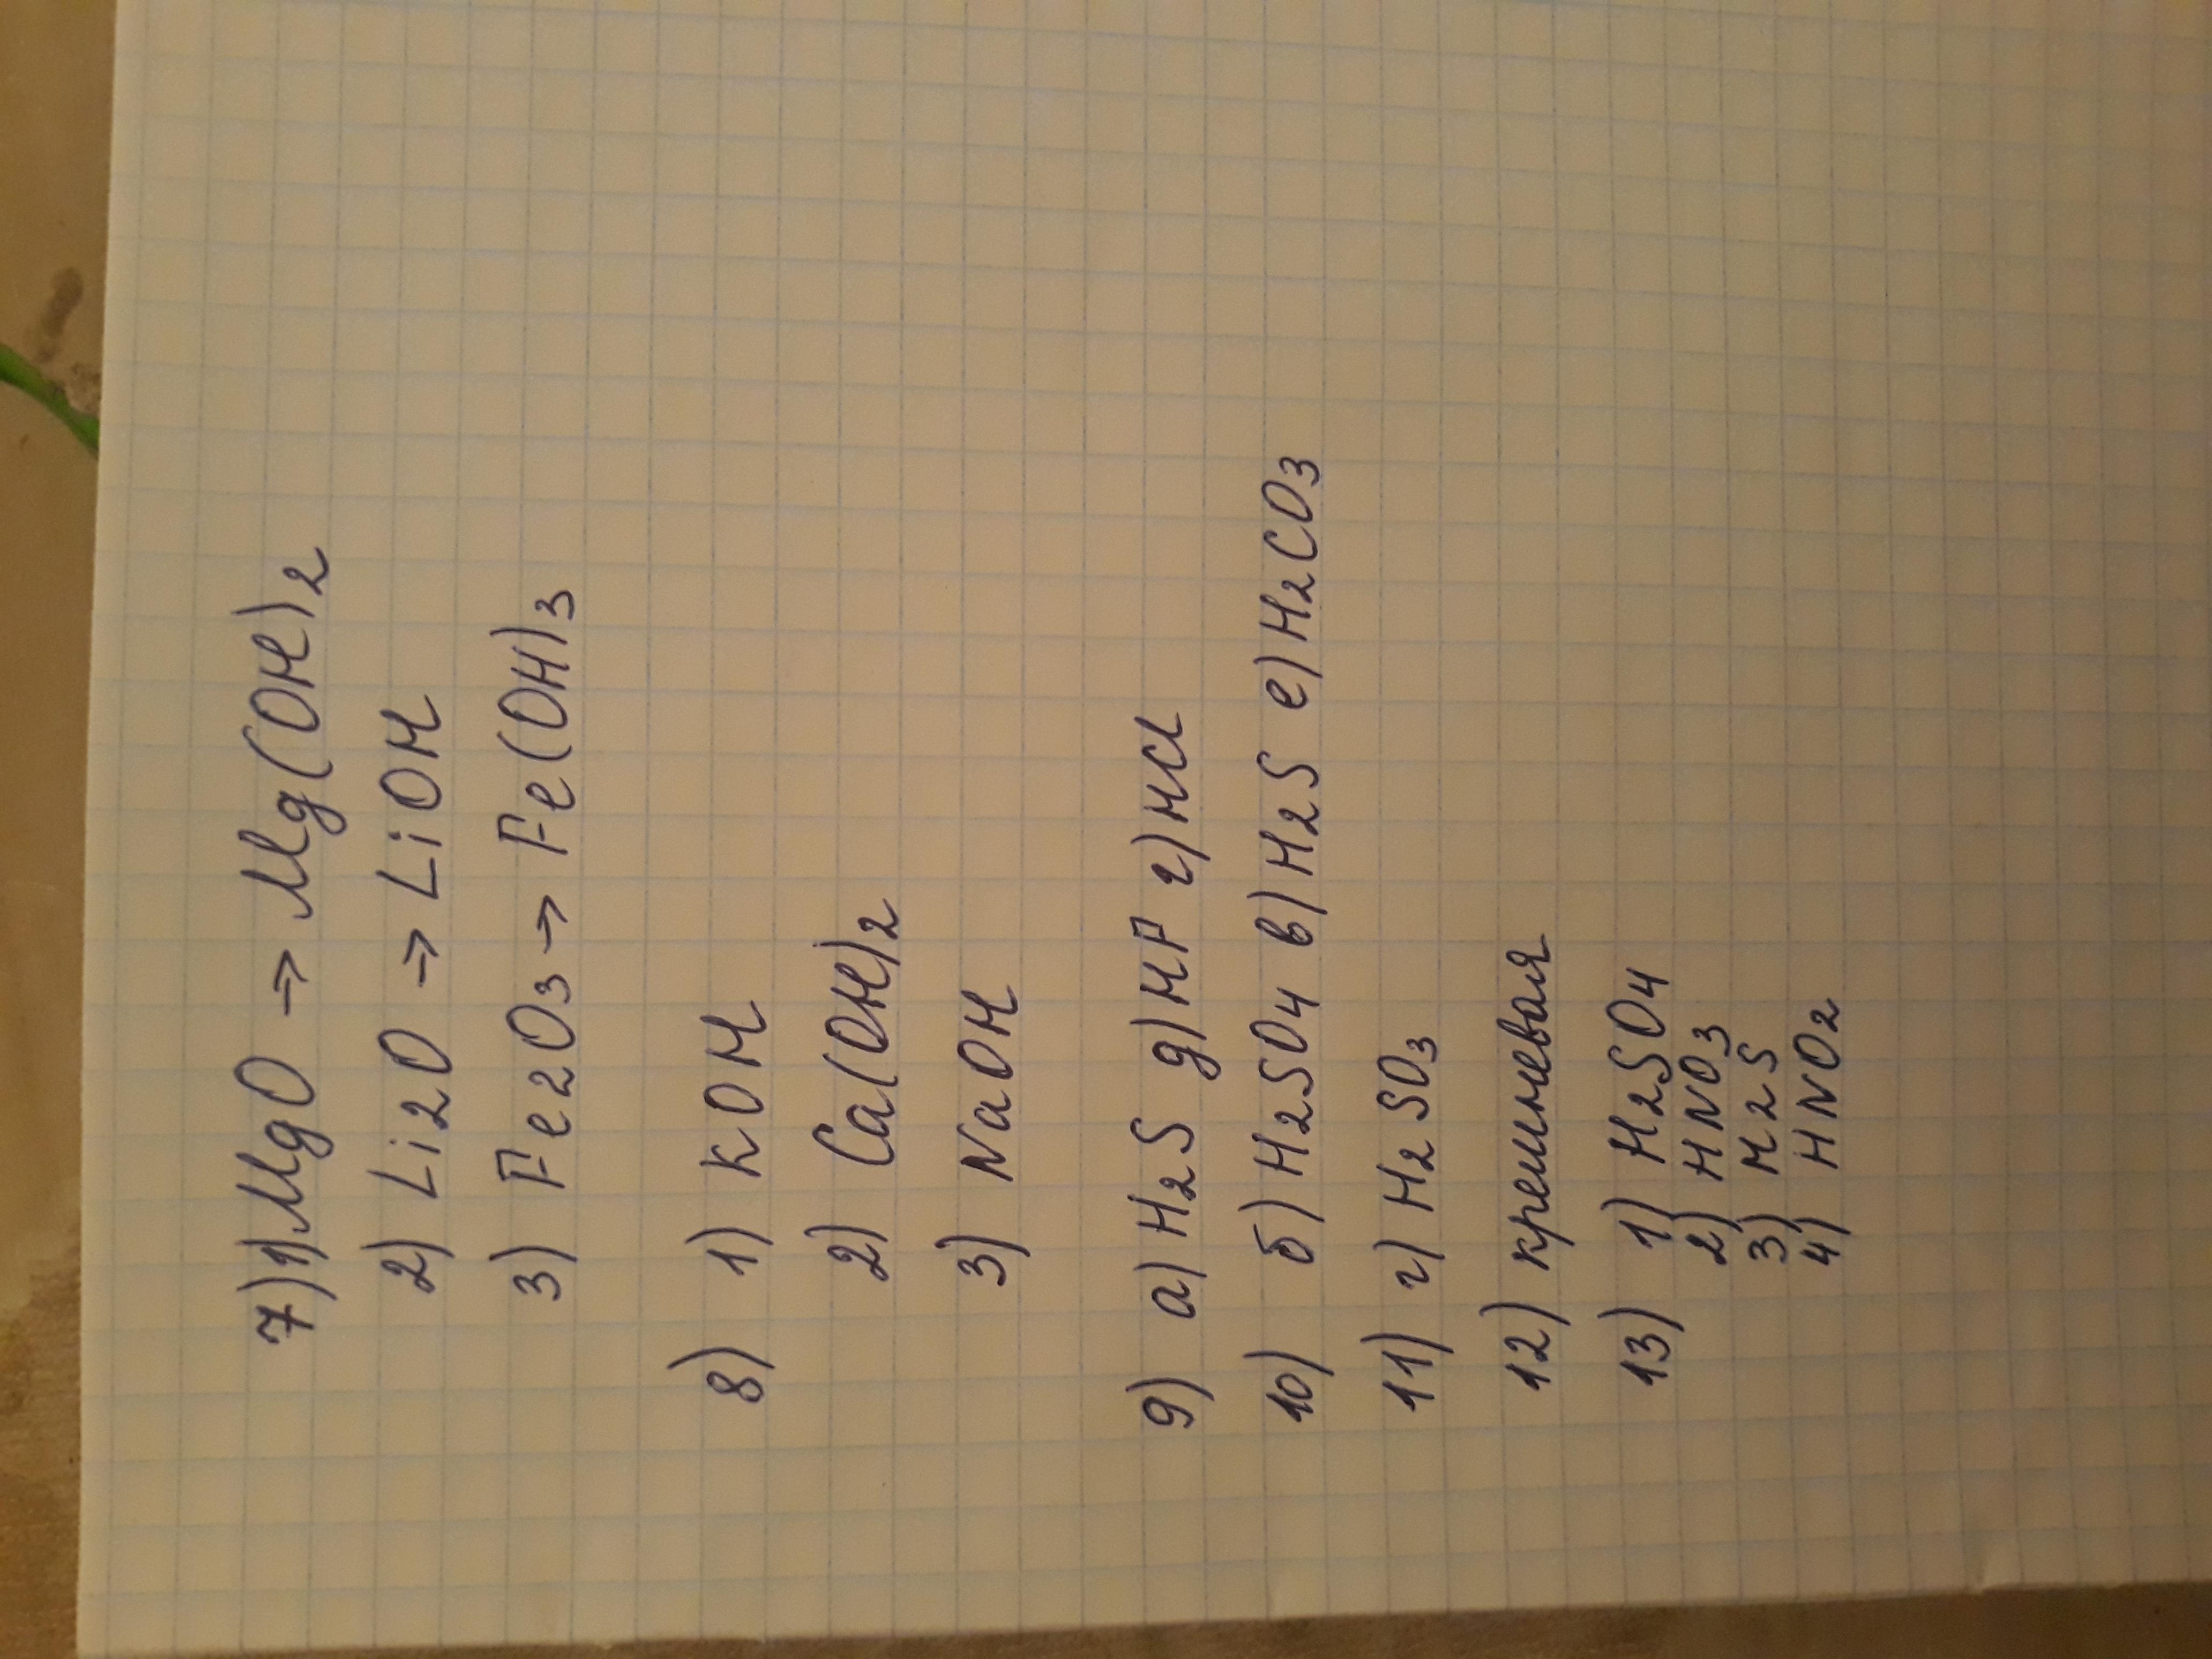 7) 1) MgO → Mg(OH)₂
2) Li₂O → LiOH
3) Fe₂O₃ → Fe(OH)₃
8) 1) KOH
2) Ca(OH)₂
3) NaOH
9) а) H₂S д) HF г) HCl
10) б) H₂SO₄ в) H₂S е) H₂CO₃
11) г) H₂SO₃
12) кремневая
13) 1) H₂SO₄
2) HNO₃
3) H₂S
4) HNO₂